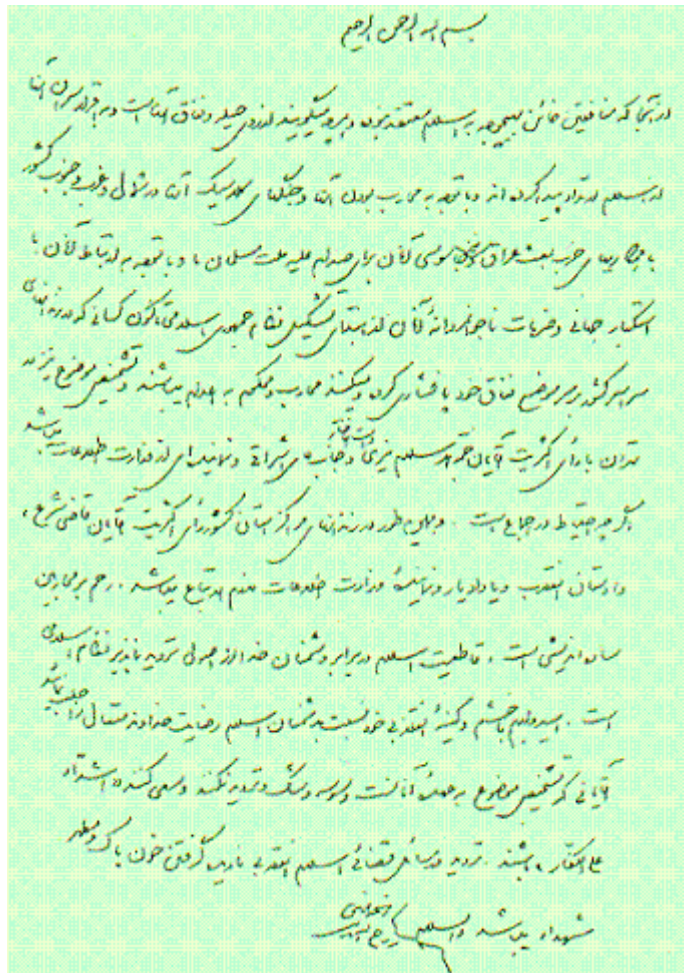 بسم الله الرحمن الرحیم
از آنجا که منافقین خائن بهیچوجه به اسلام معتقد نبوده و هر چه میگویند از روی حیله و نفاق آنهاست و به اقرار سران آنها
از اسلام ارتداد پیدا کرده‌اند و با توجه به محارب بودن آنها و جنگهای کلاسیک آنها در شمال و غرب و جنوب کشور
با همکاریهای حزب بعث عراق و نیز جاسوسی آنان برای صدام علیه ملت مسلمان ما و با توجه به ارتباط آنان با
استکبار جهانی و ضربات ناجوانمردانهٔ آنان از ابتدای تشکیل نظام جمهوری اسلامی تا کنون کسانی که در زندانهای
سراسر کشور بر سر موضع نفاق خود پافشاری کرده و میکنند محارب و محکوم به اعدام میباشند و تشخیص موضوع نیز در
تهران با رأی اکثریت آقایان حجةالاسلام نیری دامت افاضاته و جناب آقای اشراقی و نماینده‌ای از وزارت اطلاعات میباشد
اگر چه احتیاط در اجماع است . و همین طور در زندانهای مراکز استان کشور رأی اکثریت آقایان قاضی شرع ،
دادستان انقلاب و یا دادیار و نمایندهٔ وزارت اطلاعات لازم الاتباع میباشد . رحم بر محاربین
ساده اندیشی است ، قاطعیت اسلام در برابر دشمنان خدا از اصول تردید ناپذیر نظام اسلامی
است . امیدوارم با خشم و کینهٔ انقلابی خود نسبت به دشمنان اسلام رضایت خداوند متعال را جلب نمائید
آقایانی که تشخیص موضوع به عهدهٔ آنان است وسوسه و شک و تردید نکنند و سعی کنند « اشداء
علی الکفار » باشند . تردید در مسائل قضائی اسلام انقلابی نادیده گرفتن خون پاک و مطهر
شهداء میباشد والسلام
روح الله الموسوی الخمینی